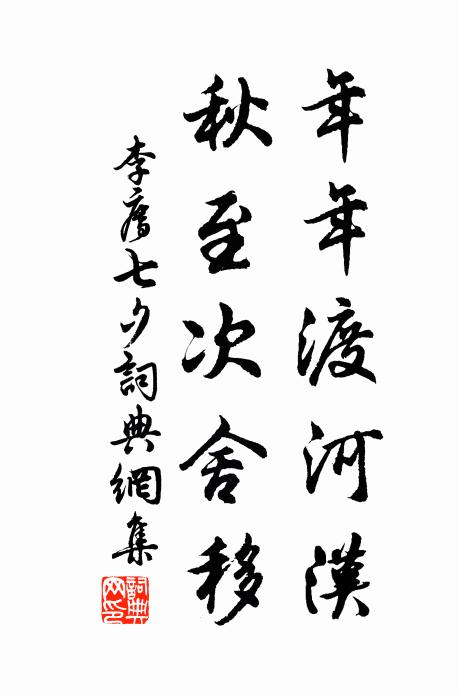 年年渡河漢
秋至次舍移
李廌七夕詞典網集
詞典
网印